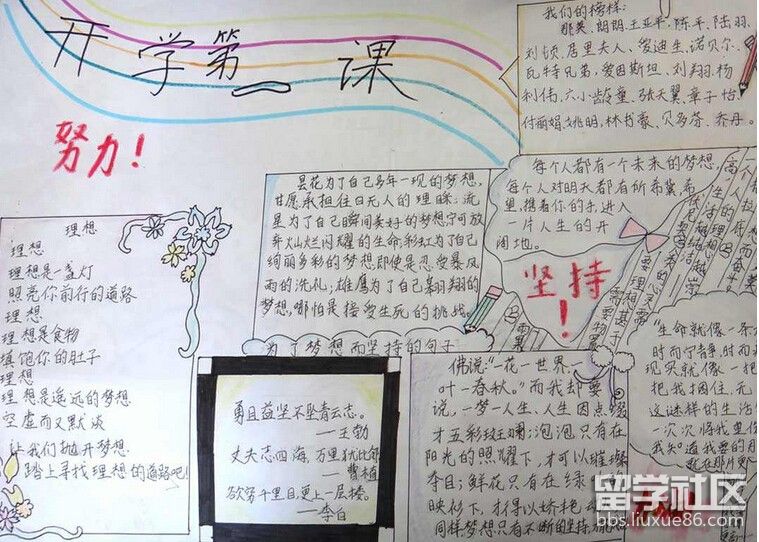 开学第一课
努力！
我们的榜样：
那英、朗朗、王亚平、陈平、陆羽、
刘顿、居里夫人、爱迪生、诺贝尔、
瓦特兄弟、爱因斯坦、刘翔、杨
利伟、六小龄童、张天翼、章子怡、
付丽娟、姚明、林书豪、贝多芬、乔丹。
每个人都有一个未来的梦想，
每个人对明天都有所希冀，希
里，携着你的手，进入
一片人生的开
阔地。
坚持！
昙花为了自己多年一现的梦想，
甘愿承担往日无人的理睬；流
星为了自己瞬间美好的梦想宁可放
弃火山烂闪耀的生命；彩虹为了自己
绚丽多彩的梦想即使是忍受暴风
雨的洗礼；雄鹰为了自己翱翔的
梦想，哪怕是接受生死的挑战。
为了梦想而坚持的句子
理想
理想
理想是一盏灯
照亮你前行的道路
理想
理想是食物
填饱你的肚子
理想
理想是遥远的梦想
空虚而又默淡
让我们抛开梦想
踏上寻找理想的道路吧！
勇且益坚不坠青云志。
——王勃
丈夫志四海，万里犹比邻
——曹植
欲第千里目更上一层楼。
——李白
佛说：“一花一世界，一
叶一春秋。”而我却要
说，一梦一人生，人生因点缀
才五彩斑斓；泡泡只有在
阳光的照耀下，才可以璀璨
夺目；鲜花只有在绿
映衫下，才得以娇艳
同样，梦想只有不断的坚持，
“生命就像一条
时而宁静，时而
现实就像一把
把我捆住，无
这谜样的生活
一次次将我
我知道我要的
就在那片
留学社区
bbs.liuxue86.com